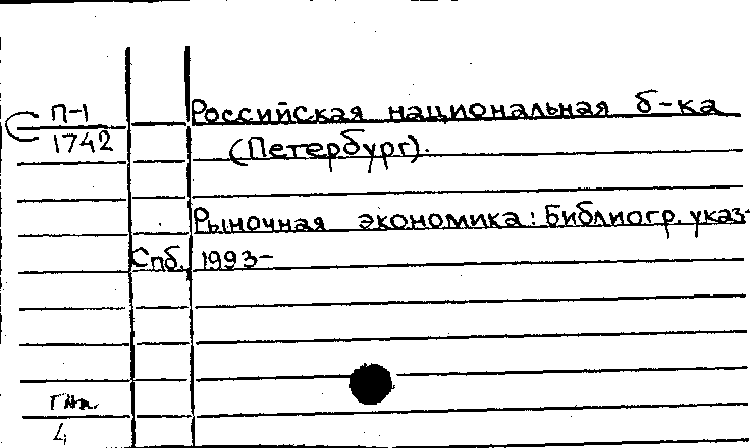 П-1
1742
Российская национальная б-ка
(Петербург).
Рыночная экономика: Библиогр. указ-
Спб. 1993-
4